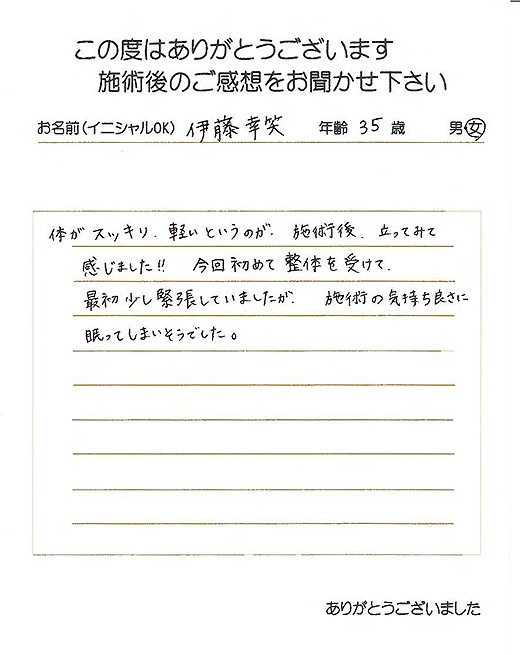 この度はありがとうございます
施術後のご感想をお聞かせ下さい
お名前(イニシャルOK) 伊藤幸笑 年齢 35 歳 男・女
体がスッキリ、軽いというのが、施術後、立ってみて
感じました!! 今回初めて整体を受けて、
最初少し緊張していましたが、施術の気持ち良さに
眠ってしまいそうでした。
ありがとうございました